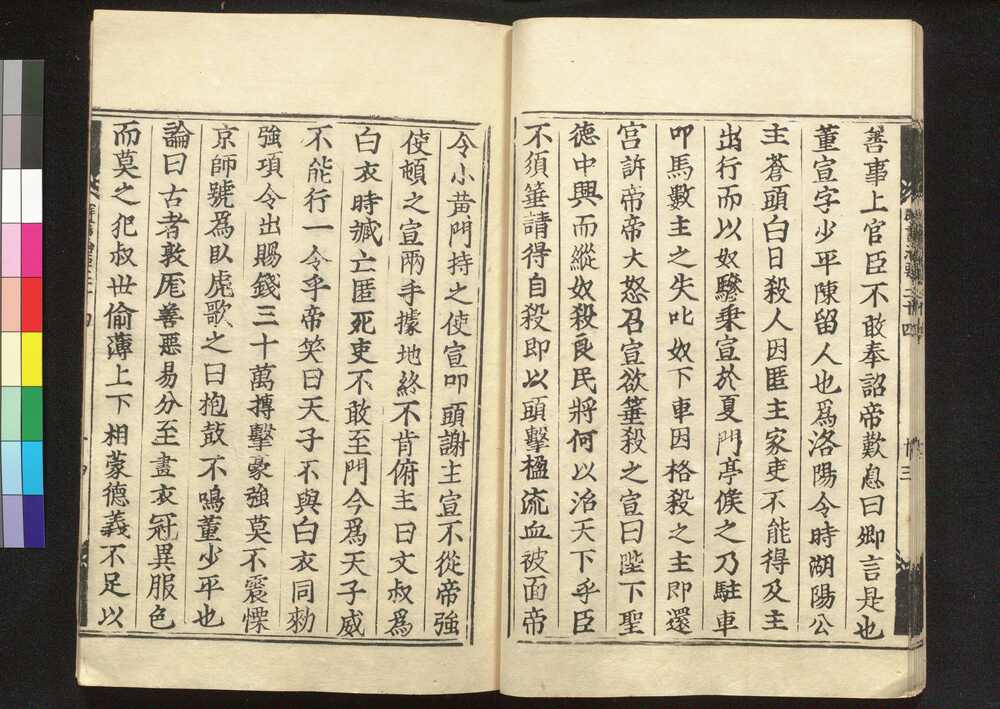 善事上官臣不敢奉詔帝歎息曰卿言是也
董宣字少平陳留人也爲洛陽令時湖陽公
主蒼頭白日殺人因匿主家吏不能得及主
出行而以奴驂乗宣於夏門亭候之乃駐車
叩馬數主之失叱奴下車因格殺之主即還
宫訴帝帝大怒召宣欲箠殺之宣曰陛下聖
徳中興而縱奴殺良民將何以治天下乎臣
不須箠請得自殺即以頭擊楹流血被面帝
令小黄門持之使宣叩頭謝主宣不從帝強
使頓之宣兩手據地終不肯俯主曰文叔爲
白衣時臧亡匿死吏不敢至門今爲天子威
不能行一令乎帝笑曰天子不與白衣同勑
強項令出賜錢三十萬搏擊豪強莫不震慄
京師號爲卧虎歌之曰抱鼓不鳴董少平也
論曰古者敦厖善惡易分至畫衣冠異服色
而莫之犯叔世偷薄上下相蒙德義不足以